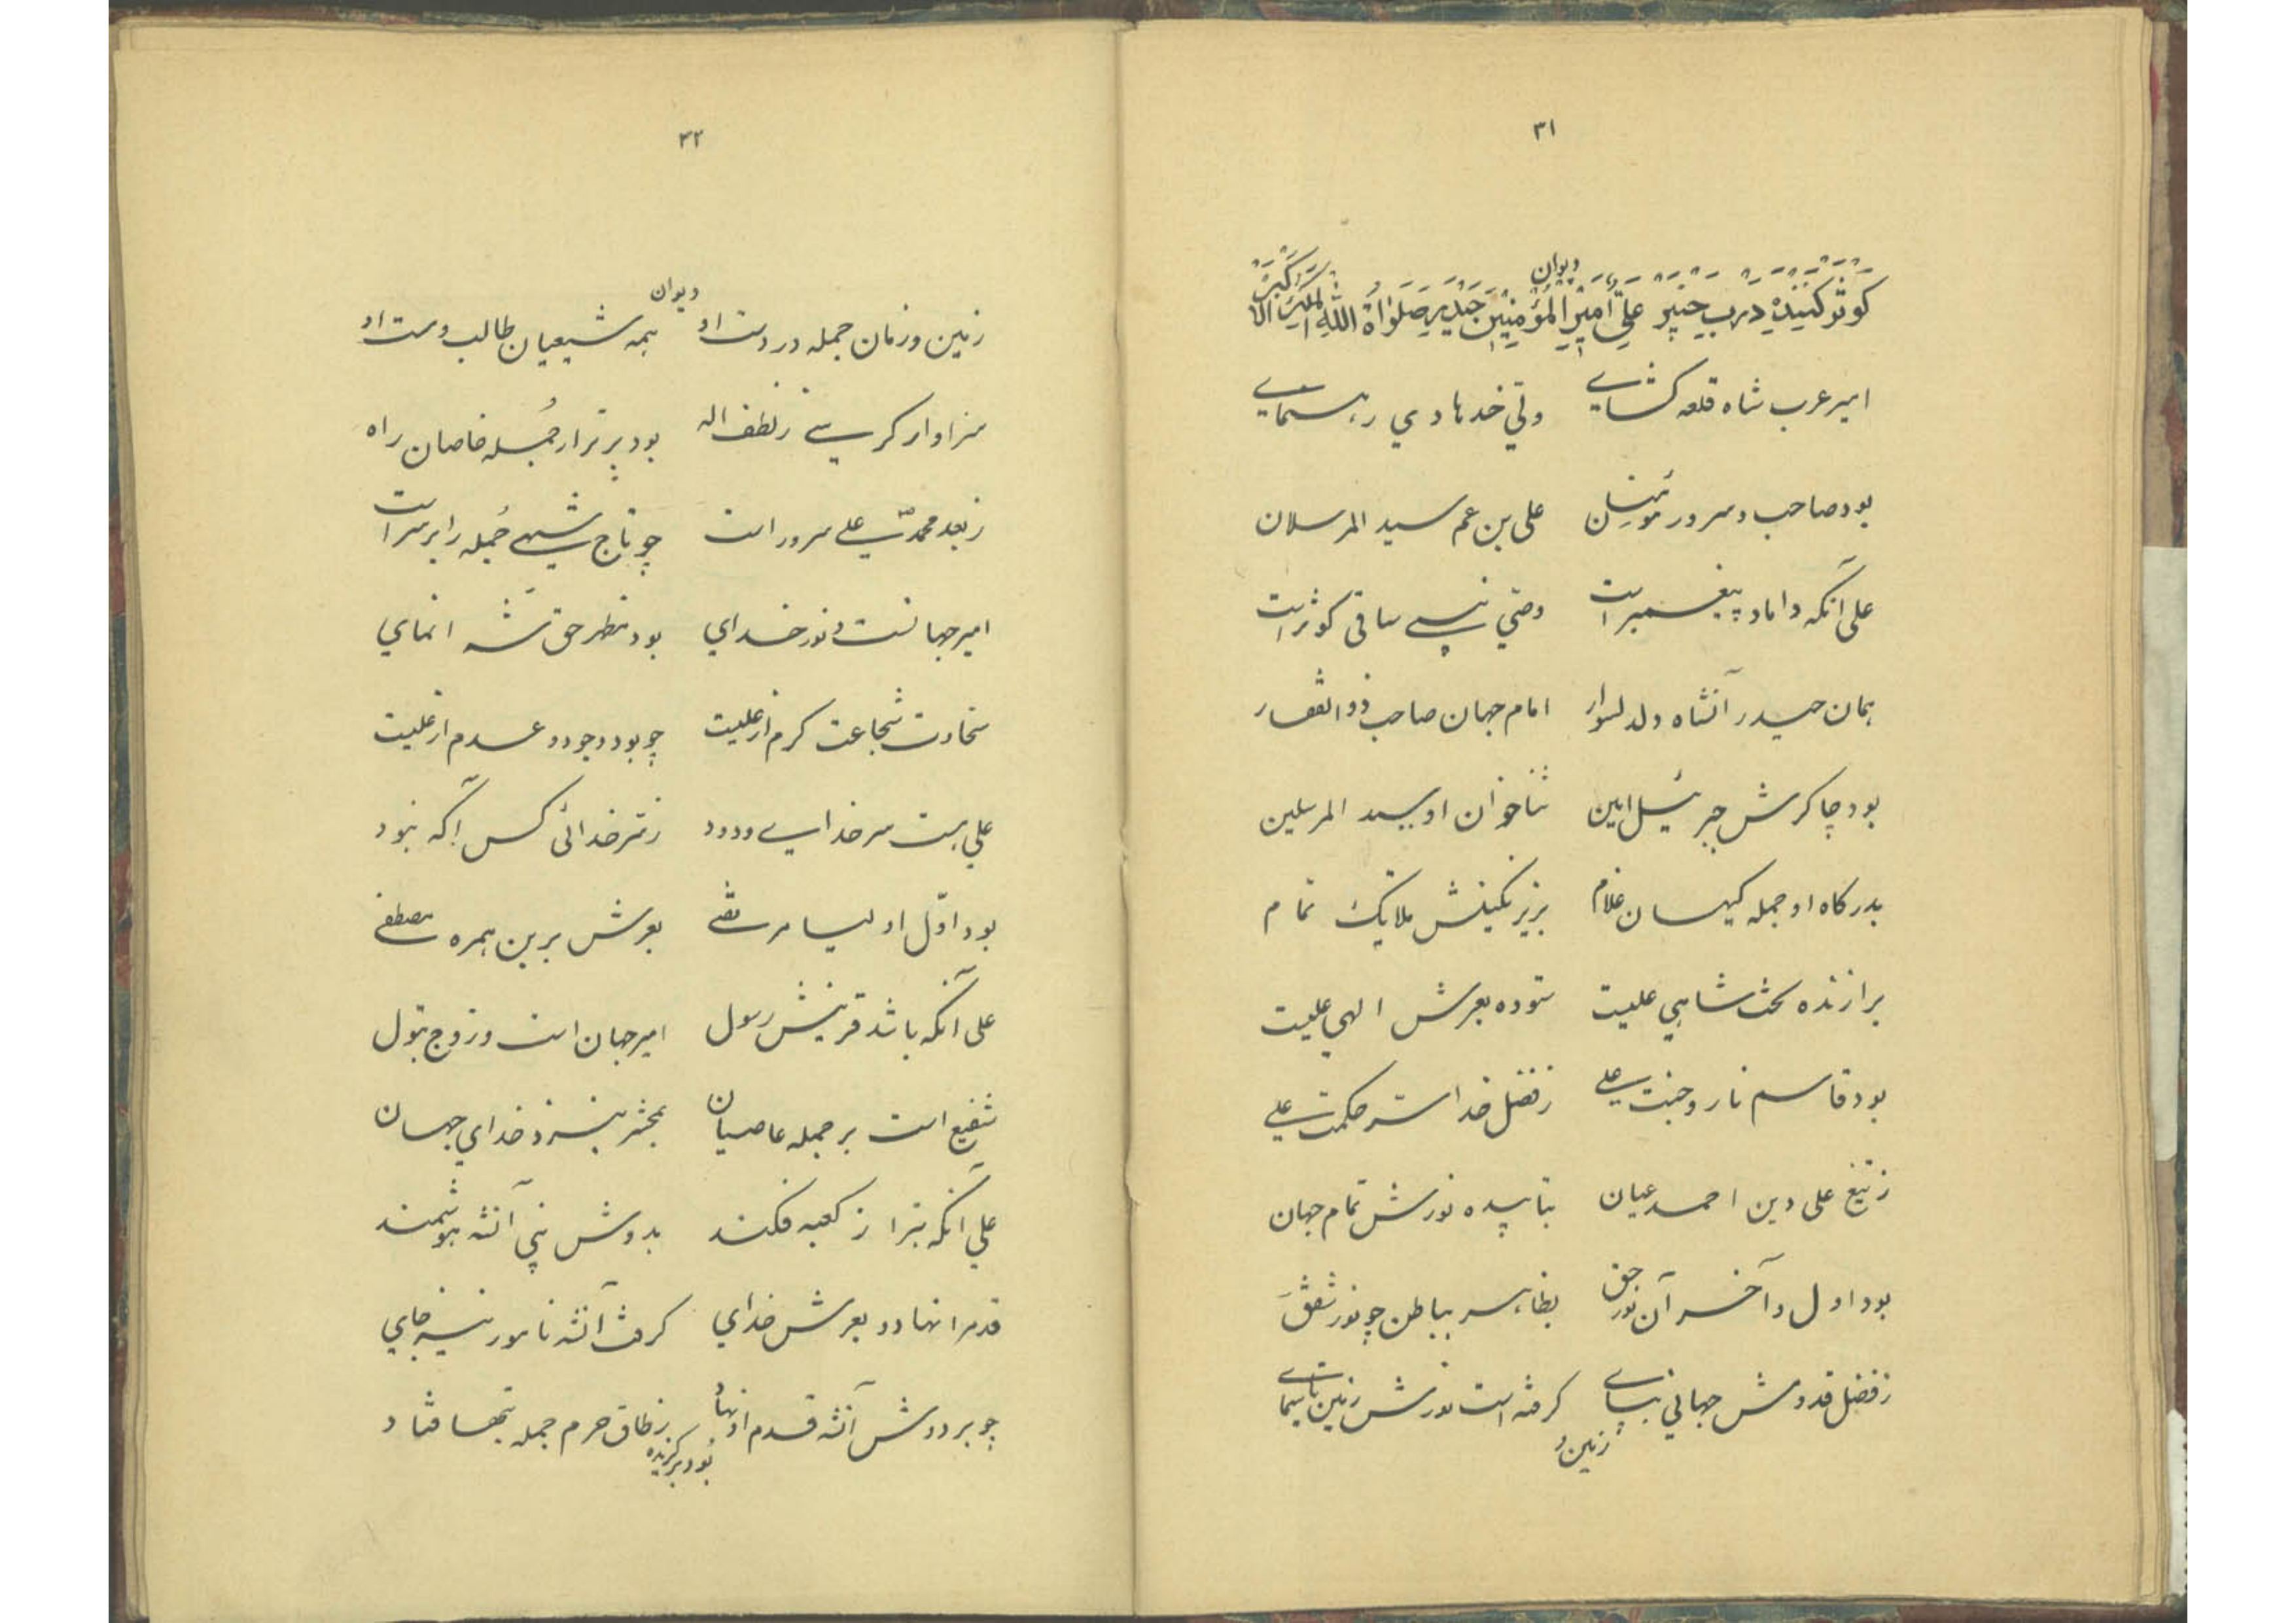 ۳۱
دیوان
کننده در خیبر علی امیر المؤمنین حیدر صلواة الله الملک الاکبر
امیر عرب شاه قلعه کشای ولی خدا هادی رهنمای
بود صاحب و سرور مؤمنان علی بن عم سید المرسلان
علی آنکه داماد پیغمبر است وصی نبی ساقی کوثر است
همان حیدر آنشاه دلدلسوار امام جهان صاحب ذوالفقار
بود چاکرش جبرئیل امین ثناخوان او سید المرسلین
بدرگاه او جمله کیهان غلام بزیر نگینش ملایک تمام
برازنده تخت شاهی علیست ستوده بعرش الهی علیست
بود قاسم نار و جنت علی ز فضل خدا سر حکمت علی
ز تیغ علی دین احمد عیان بتابیده نورش تمام جهان
بود اول و آخر آن نور حق بظاهر بباطن چو نور شفق
ز فضل قدومش جهانی بپای گرفته است نورش زمین تا سمای
زمین و
۳۲
دیوان
زمین و زمان جمله در دست او همه شیعیان طالب دوست او
سزاوار کرسی ز لطف اله بود برتر از جمله خاصان راه
ز بعد محمد علی سرور است چو تاج شهی جمله را بر سر است
امیر جهانست و نور خدای بود مظهر حق شه انمای
سخاوت شجاعت کرم از علیست چو بود وجود و عدم از علیست
علی هست سر خدای ودود ز سر خدائی کس آگه نبود
بود اول اولیا مرتضی بعرش برین همره مصطفی
علی آنکه باشد قرینش رسول امیر جهان است و زوج بتول
شفیع است بر جمله عاصیان بمحشر بنزد خدای جهان
علی آنکه بترا ز کعبه فکند بدوش نبی آنشه هوشمند
قدم را نهاد و بعرش خدای گرفت آنشه نامور نیز جای
چو بر دوش آنشه قدم او نهاد ز طاق حرم جمله بتها فتاد
بود برگزیده